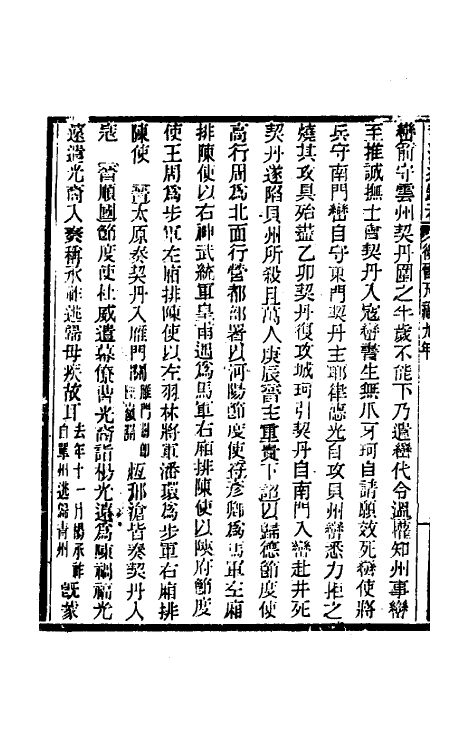 巒前守雲州契丹圍之半歲不能下乃遣巒代令溫權知州事巒
至推誠撫士會契丹入寇巒書生無爪牙珂自請願效死巒使將
兵守南門巒自守東門契丹主耶律德光自攻貝州巒悉力拒之
燒其攻具殆盡乙卯契丹復攻城珂引契丹自南門入巒赴井死
契丹遂陷貝州所殺且萬人庚辰晉主重貴下詔以歸德節度使
高行周為北面行營都部署以河陽節度使符彥卿為馬軍左廂
排陳使以右神武統軍皇甫遇為馬軍右廂排陳使以陝府節度
使王周為步軍左廂排陳使以左羽林將軍潘環為步軍右廂排
陳使　晉太原奏契丹入雁門關　恆邢滄皆奏契丹入
寇　晉順國節度使杜威遣幕僚曹光裔詣楊光遠為陳禍福光
遠遣光裔入奏稱承祚逃歸母疾故耳去年十一月楊承祚自單州逃歸青州既蒙